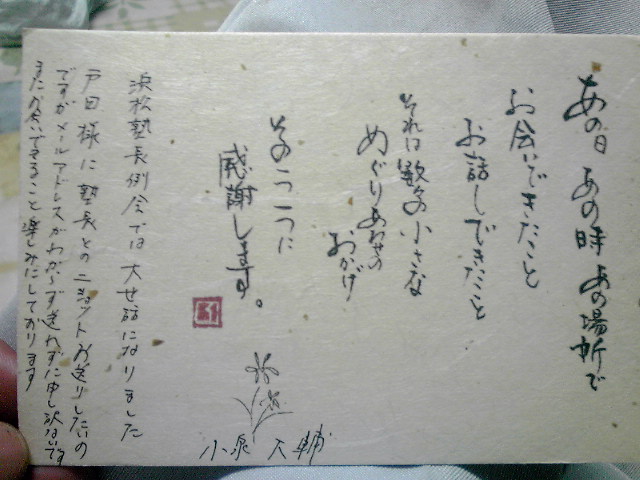 あの日 あの時 あの場所で
お会いできたこと
お話しできたこと
それは数々の小さな
めぐりあわせの
おかげ
その一つ一つに
感謝します。
小泉 大輔
浜松塾長例会では大せ話になりました
戸田様に塾長との二ショットお送りしたいの
ですがメールアドレスがわからず送れずに申し訳ないです
またお会いできること楽しみにしております